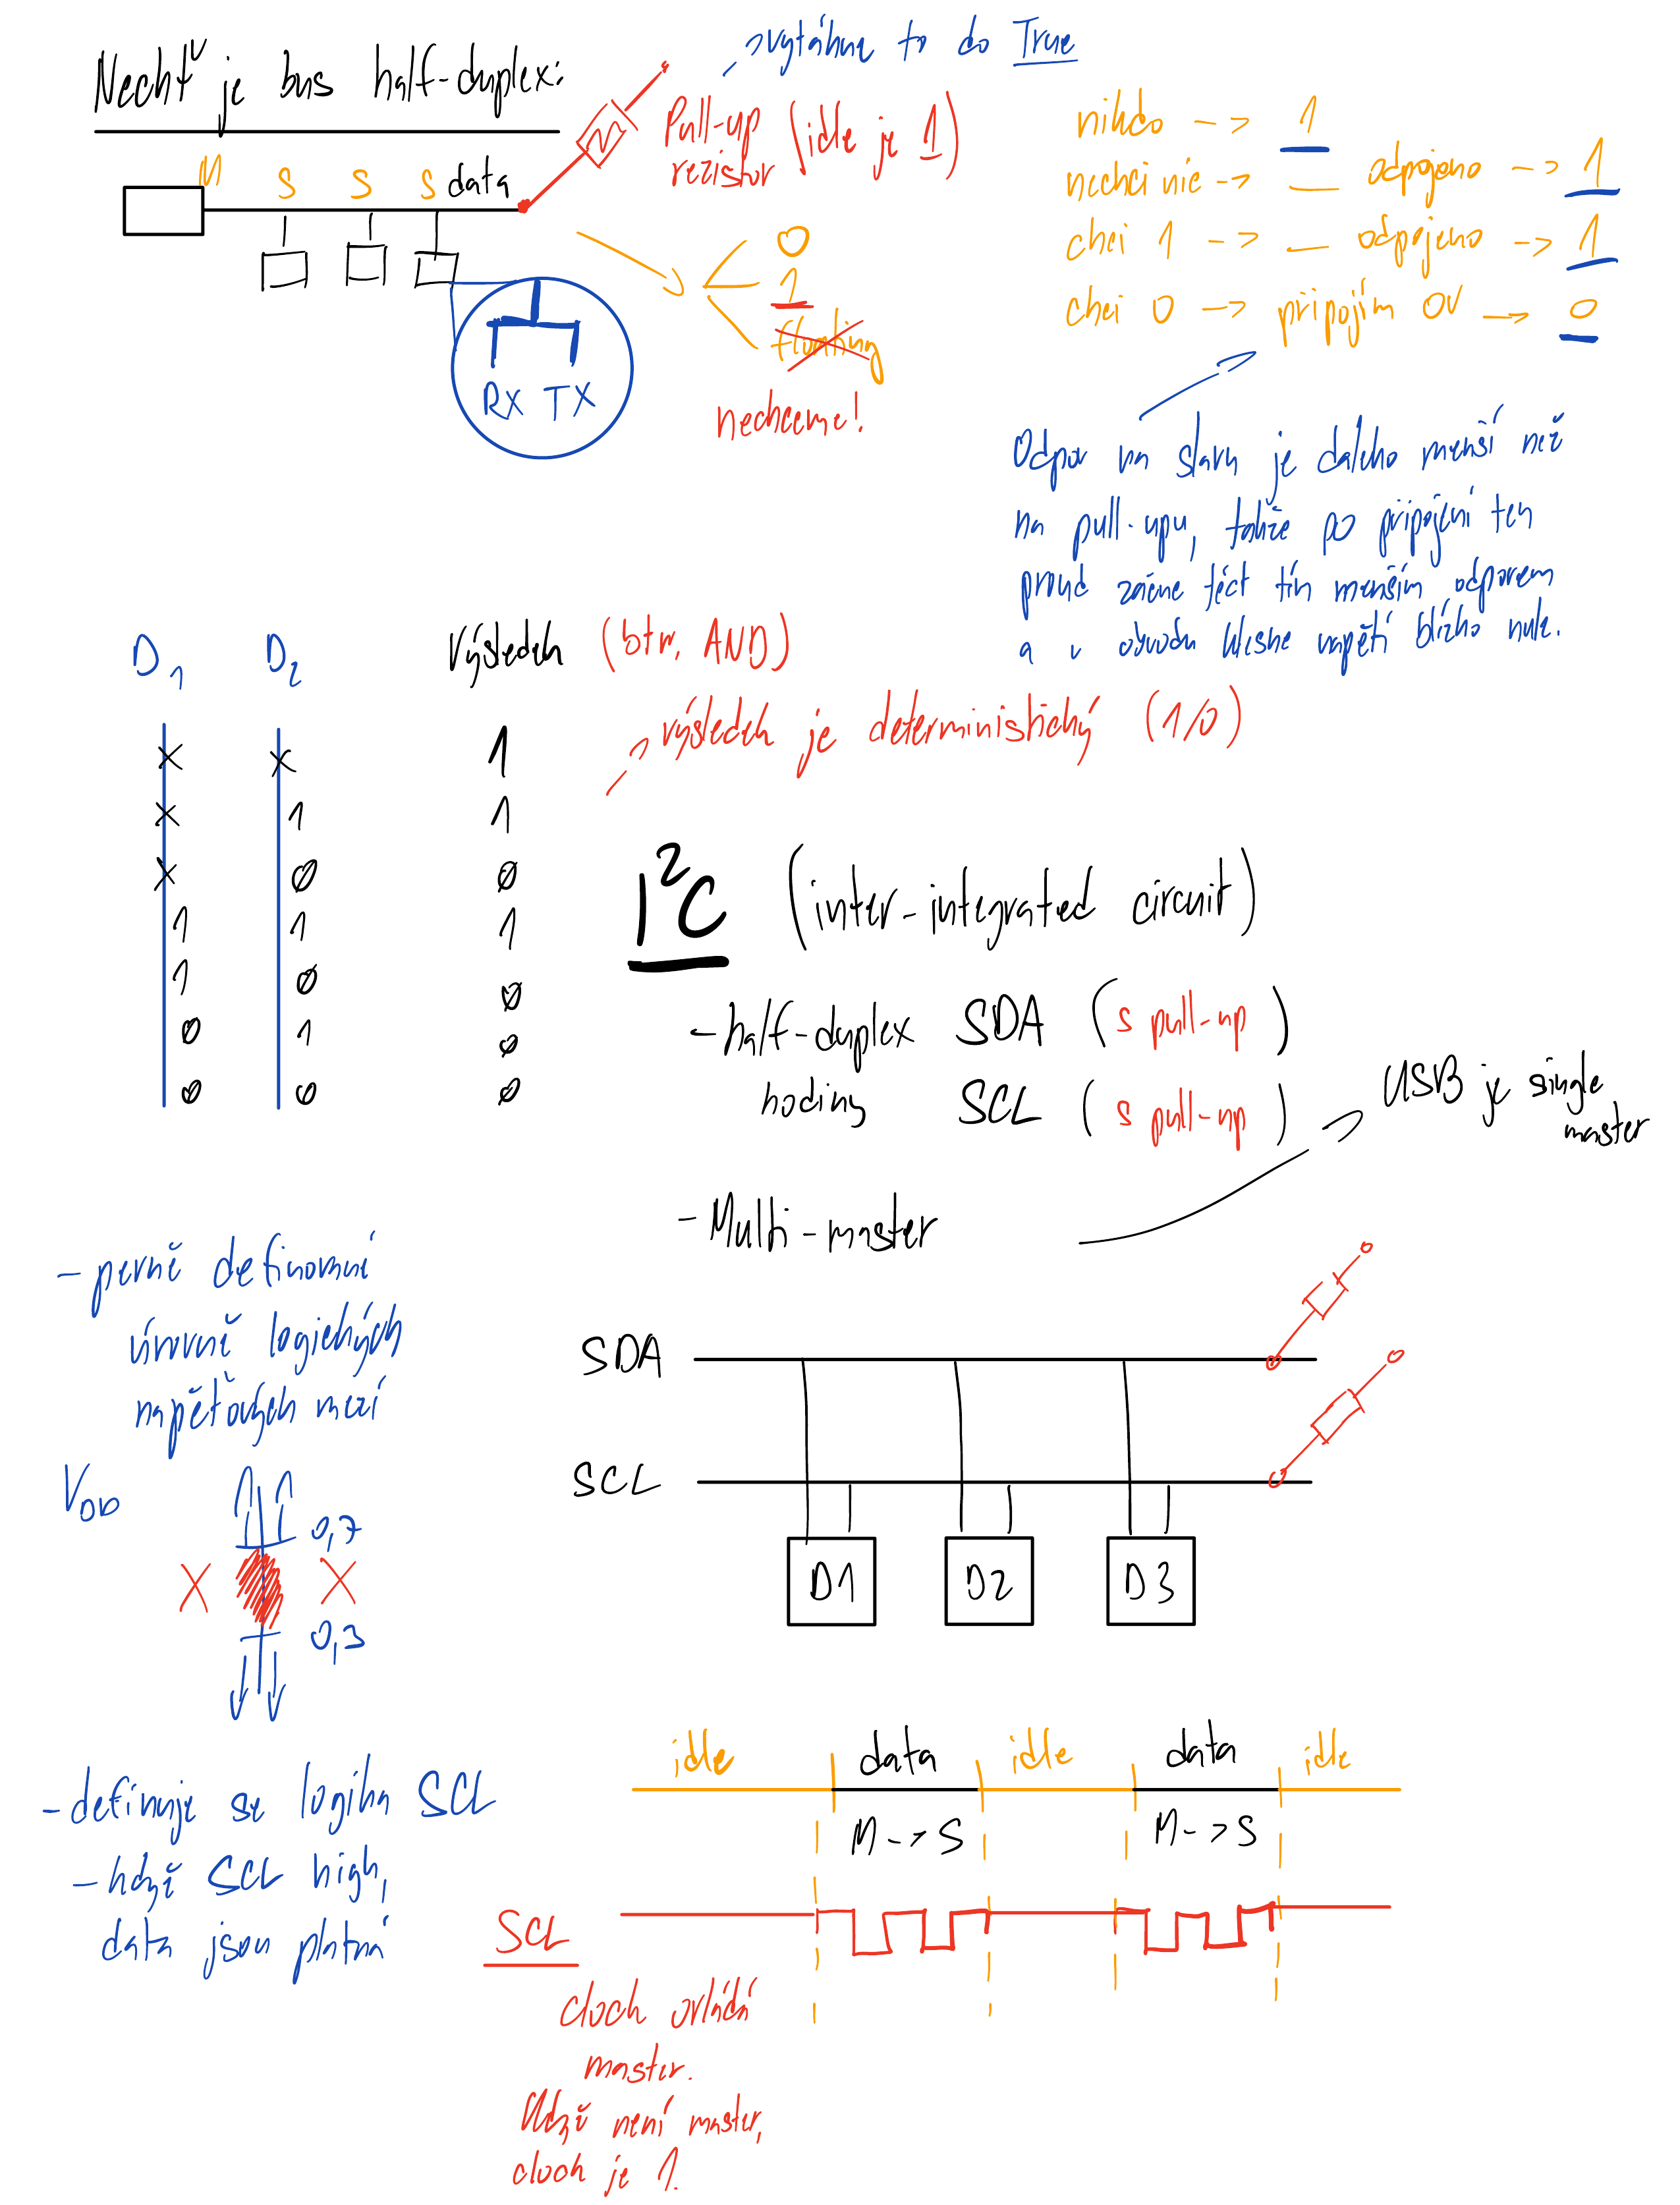 Nechť je bus half-duplex:
M S S S data
RX TX
Pull-up (idle je 1)
rezistor
vytáhne to do True
0
1
floating
nechceme!
nikdo -> 1
nechci nic -> — odpojeno -> 1
chci 1 -> — odpojeno -> 1
chci 0 -> připojím 0V -> 0
Odpor na slavu je daleko menší než
na pull-upu, takže po připojení ten
proud začne téct tím menším odporem
a v obvodu klesne napětí blízko nule.
D1 D2 Výsledek (btw, AND)
výsledek je deterministický (1/0)
X X 1
X 1 1
X 0 0
1 1 1
1 0 0
0 1 0
0 0 0
I²C (inter-integrated circuit)
- half-duplex SDA (s pull-up)
hodiny SCL (s pull-up)
- Multi-master
USB je single
master
- pevně definované
úrovně logických
napěťových mezí
VDD
0,7
X X
0,3
SDA
SCL
D1 D2 D3
- definuje se logika SCL
- když SCL high,
data jsou platná
idle data idle data idle
M -> S M -> S
SCL
clock ovládá
master.
Když není master,
clock je 1.